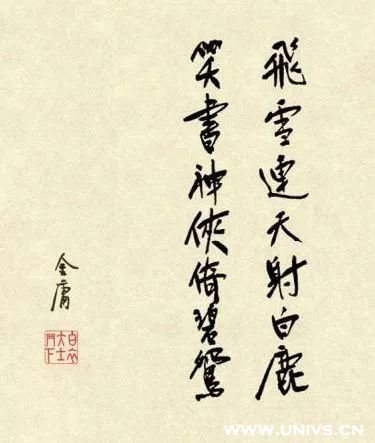 飛雪連天射白鹿
笑書神俠倚碧鴛
金庸
白衣
大士
門下
WWW.UNIVS.CN